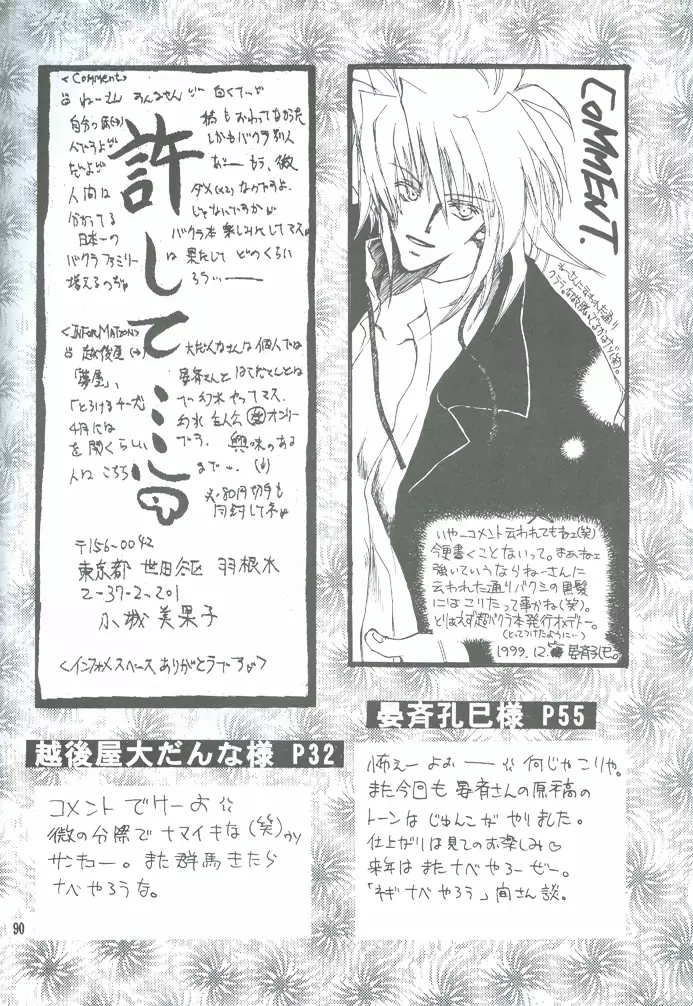 COMMENT.
いやーコメント云われてもねェ(笑)
今更書くことないって。まあねェ
強いていうならねーさんに
云われた通りバクシの黒髪
にはこりたって事かね(笑)。
とりあえず超バクラ本発行オメデトー。
(とってつけたように…)
1999.12.
晏斉孔巳。
晏斉孔巳様 P55
怖ぇー よぉ ーー 何じゃこりゃ。
また今回も 晏斉さんの原稿の
トーンは じゅんこが やりました。
仕上がりは見てのお楽しみ♡
来年は またナベやろーぜー。
「ネギナベやろう」
<Comment>
許して…
白くて
自分の
人間は
分かってる
日本一の
バクラファミリー
増えるのぢゃ
稿もおわってなから
しかもバクラ別人
あーもう、微
ダメ(×2)なヤツですよ。
じゃなんですが
バクラ本 楽しみにしてマス。
は 果たして どのくらい
ろう…
<INFORMATION>
越後屋
「夢屋」、
「とろけるチーズ
4月には
を開くらしい
人は こちら
大だんなさんは個人では
晏斉さんと
で幻水 やってマス。
幻水 主人公
オンリー
興味のある
まで…
80円切手も
同封してネ
〒156-0042
東京都 世田谷区 羽根木
2-37-2-201
小城 美果子
<インフォメスペース ありがとうです>
越後屋大だんな様 P32
コメント でけーよ
微の分際で ナマイキな(笑)
サンキュー。また 群馬 きたら
ナベ やろうな。
90